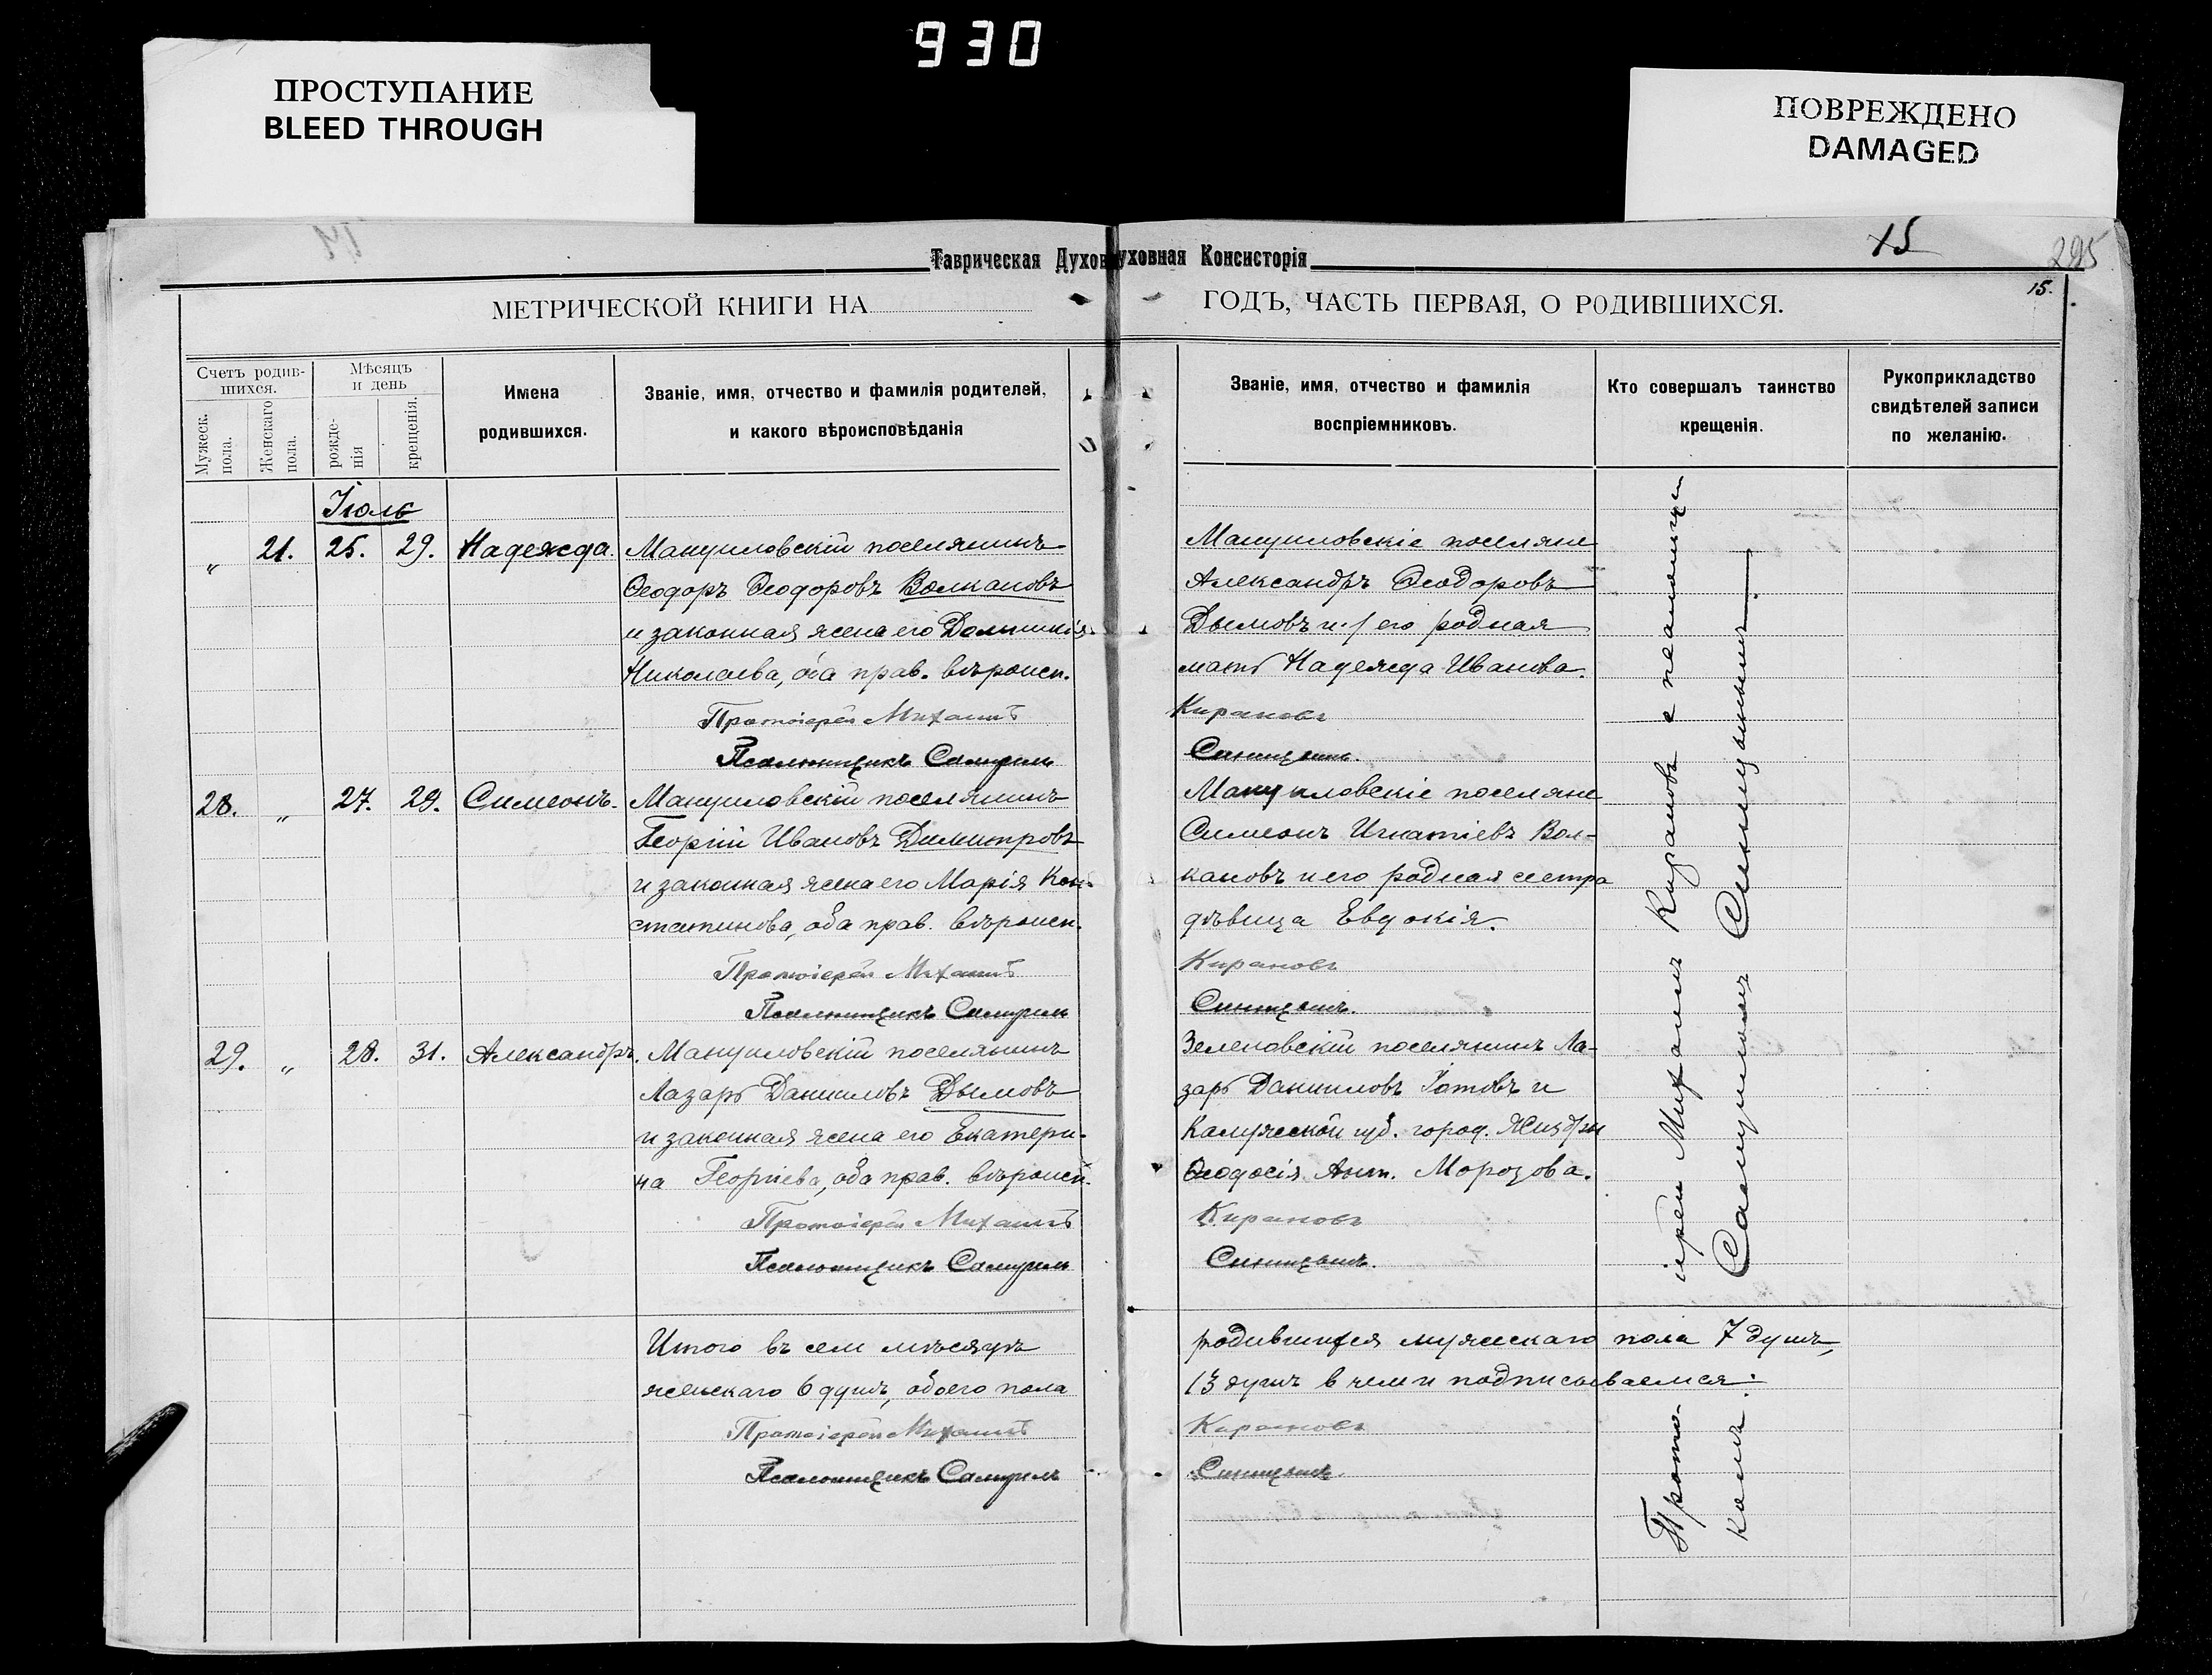 930
ПРОСТУПАНИЕ
BLEED THROUGH
ПОВРЕЖДЕНО
DAMAGED
15
295
15.
Таврическая Духов
уховная Консисторія
МЕТРИЧЕСКОЙ КНИГИ НА
ГОДЪ, ЧАСТЬ ПЕРВАЯ, О РОДИВШИХСЯ.
Счетъ родив-
шихся.
Мужеск.
пола.
Женскаго
пола.
Мѣсяцъ
и день
рожде-
нія
крещенія.
Имена
родившихся.
Званіе, имя, отчество и фамилія родителей,
и какого вѣроисповѣданія
Званіе, имя, отчество и фамилія
воспріемниковъ.
Кто совершалъ таинство
крещенія.
Рукоприкладство
свидѣтелей записи
по желанію.
Іюль
„ 21. 25. 29. Надежда.
Мануиловскій поселянинъ
Ѳеодоръ Ѳеодоровъ Волкановъ
и законная жена его
Николаева, оба прав. вѣроисп.
Протоіерей Михаилъ
Псаломщикъ Самуилъ
Мануиловскіе поселяне
Александръ Ѳеодоровъ
Дымовъ и его родная
мать Надежда Иванова.
Кирановъ
Синицынъ.
28. „ 27. 29. Симеонъ.
Мануиловскій поселянинъ
Георгій Ивановъ Димитровъ
и законная жена его Марія Кон-
стантинова, оба прав. вѣроисп.
Протоіерей Михаилъ
Псаломщикъ Самуилъ
Мануиловскіе поселяне
Симеонъ Игнатіевъ Вол-
кановъ и его родная сестра
дѣвица Евдокія.
Кирановъ
Синицынъ.
29. „ 28. 31. Александръ.
Мануиловскій поселянинъ
Лазарь Данииловъ Дымовъ
и законная жена его Екатери-
на Георгіева, оба прав. вѣроисп.
Протоіерей Михаилъ
Псаломщикъ Самуилъ
Зеленовскій поселянинъ Ла-
зарь Данииловъ и
Калужской губ. город. Жиздры
Ѳеодосія Ант. Морозова.
Кирановъ
Синицынъ.
Итого въ сем мѣсяцѣ
женскаго 6 душъ, обоего пола
Протоіерей Михаилъ
Псаломщикъ Самуилъ
родившихся мужескаго пола 7 душъ,
13 душъ в чем и подписываемся:
Кирановъ
Синицынъ.
Прото- іерей Михаилъ Кирановъ с псаломщи-
комъ Самуиломъ Синицынымъ